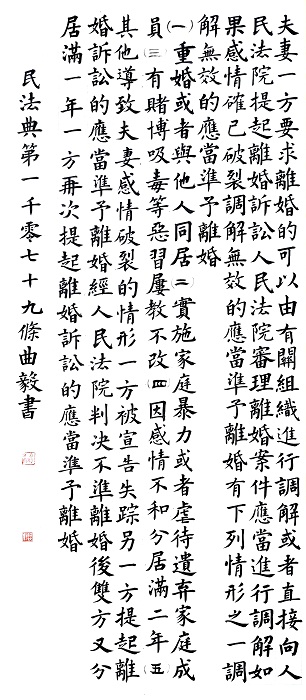 夫妻一方要求離婚的可以由有關組織進行調解或者直接向人
民法院提起離婚訴訟人民法院審理離婚案件應當進行調解如
果感情確已破裂調解無效的應當準予離婚有下列情形之一調
解無效的應當準予離婚
㈠重婚或者與他人同居㈡實施家庭暴力或者虐待遺弃家庭成
員㈢有賭博吸毒等惡習屢教不改㈣因感情不和分居滿二年㈤
其他導致夫妻感情破裂的情形一方被宣告失踪另一方提起離
婚訴訟的應當準予離婚經人民法院判决不準離婚後雙方又分
居滿一年一方再次提起離婚訴訟的應當準予離婚
民法典第一千零七十九條曲毅書